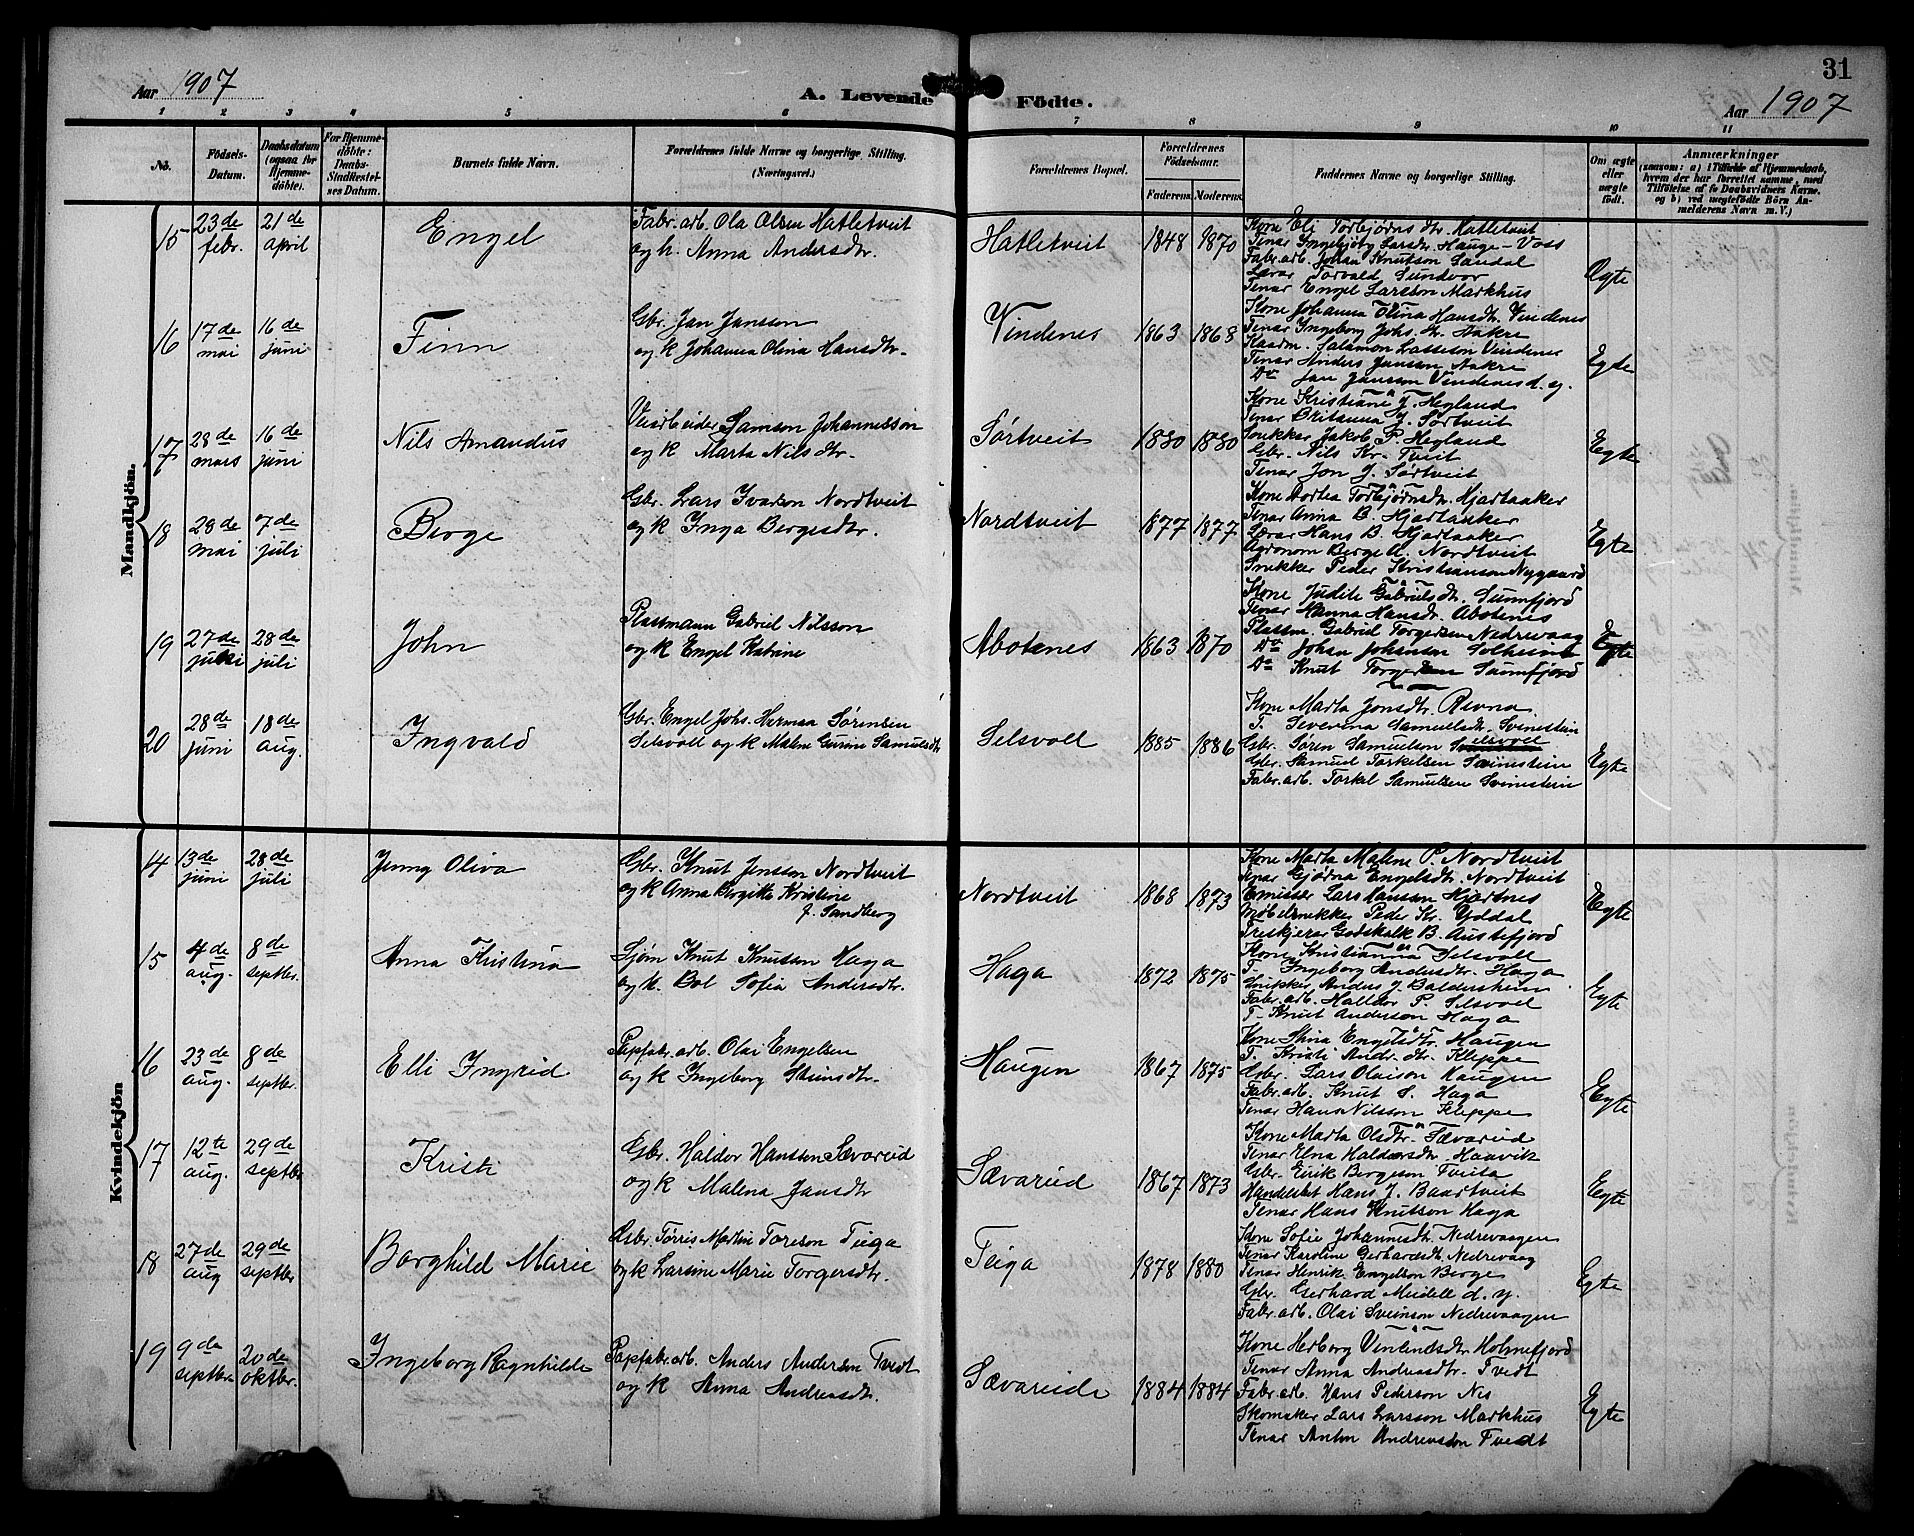 31
Aar 1907
A. Levende Födte.
Aar 1907
1 2 3 4 5 6 7 8 9 10 11
No.
Födsels-Datum.
Daabsdatum (ogsaa for Hjemme-döbte).
For Hjemme-döbte: Daabs-Stadfæstel-ses Datum.
Barnets fulde Navn.
Forældrenes fulde Navne og borgerlige Stilling. (Næringsvei.)
Forældrenes Bopæl.
Forældrenes Födselsaar.
Faderens. Moderens.
Faddernes Navne og borgerlige Stilling.
Om ægte eller uægte födt.
Anmærkninger
(saasom: a) i Tilfælde af Hjemmedaab, hvem der har forrettet samme, med Tilföielse af to Daabsvidners Navne, og b) ved uægtefödte Börn Anmelderens Navn m. V.)
Mandkjön.
15 23de febr. 21de april
Engel
Fabr. arb. Ola Olsen Hatletveit
og k. Anna Andersdtr.
Hatletveit 1848 1870
Kone Eli Torbjørnsdtr. Hatletveit
Tenar Ingebjørg Larsdtr. Hauge - Voss
Fabr. arb. Johan Knutson Sandal
Lærar Torvald Sundvor
Tenar Engel Larsson Markhus
Ægte
16 17de mai 16de juni
Finn
Gbr. Jan Jansson
og k Johanna Olina Hansdtr.
Vindenes 1863 1868
Kone Johanna Olina Hansdtr. Vindenes
Tenar Ingeborg Johs. dtr. Aakre
Kaarm. Salamon Lasseson Vindenes
Tenar Anders Jansson Aakre
Do Jan Jansson Vindenes d. y.
Egte
17 28de mars 16de juni
Nils Amandus
Veiarbeider Samson Johannesson
og k Marta Nilsdtr.
Sørtveit 1880 1880
Kone Kristiane J. Hegland
Tenar Britanna J. Sørtveit
Snekkar Jakob P. Hegland
Gbr. Nils Kr. Tveit
Tenar Jon J. Sørtveit
Egte
18 28de mai 7de juli
Berge
Gbr. Lars Ivarson Nordtveit
og k Inga Bergesdtr.
Nordtveit 1877 1877
Kone Dortea Torbjørnsdtr. Hjartaaker
Tenar Anna B. Hjartaaker
Lærar Hans B. Hjartaaker
Agronom Berge A. Nordtveit
Snekker Peder Kristianson Nygaard
Egte
19 27de juni 28de juli
John
Plassmann Gabriel Nilsson
og k Engel Katrine
Abotenes 1863 1870
Kone Judite Gabrielsdtr. Sunnfjord
Tenar Hanna Hansdtr. Abotenes
Plassm. Gabriel Torgersen Nedrevaag
Do Johan Johansen Solheim
Do Knut Torgersen Sunnfjord
Egte
20 28de juni 18de aug.
Ingvald
Gbr. Engel Johs. Herman Sørensen
Selsvoll og k Malene Gurine Samuelsdtr
Selsvoll 1885 1886
Kone Marta Jonsdtr. Revna
T. Severina Samuelsdtr. Svinestein
Gbr. Søren Samuelson Selsvoll
Gbr. Samuel Torkelsen Svinestein
Fabr. arb. Torkel Samuelsen Svinestein
Egte
Kvindekjön
14 13de juni 28de juli
Jenny Oliva
Gbr. Knut Jensson Nordtveit
og k Anna Birgitte Kristine
f. Sandberg
Nordtveit 1868 1873
Kone Marta Malene P. Nordtveit
Tenar Gjødna Engelsdtr. Nordtveit
Emissær Lars Hanson Hjartnes
Møbelsnikker Peder Kr. Yddal
Treskjerar Godskalk B. Austefjord
Egte
15 4de aug. 8de septbr.
Anna Kristina
Sjøm Knut Knutson Haga
og k. Bol Sofia Andersdtr.
Haga 1872 1875
Kone Kristianna Selsvoll
T. Ingeborg Andersdtr. Haga
Snikker Anders J. Baldersheim
Fabr. arb. Halldor P. Selsvoll
T. Knut Anderson Haga
Egte
16 23de aug. 8de septbr.
Elli Ingrid
Papfabr. arb. Olai Engelsen
og k Ingeborg Steinsdtr.
Haugen 1867 1875
Kone Stina Engelsdtr. Haugen
T. Kristi Andr. dtr. Kleppe
Gbr. Lars Olaison Haugen
Fabr. arb. Knut S. Haga
Tenar Hans Nilsson Kleppe
Egte
17 12te aug. 29de septbr
Kristi
Gbr. Haldor Hansson Sævareid
og k Malena Jansdtr
Sævareid 1867 1873
Kone Marta Olsdtr. Sævareid
Tenar Elna Haldorsdtr. Haavik
Gbr. Eirik Bergeson Tveita
Handelsbet Hans J. Baartveit
Tenar Hans Knutson Haga
Egte
18 27de aug 29de septbr
Borghild Marie
Gbr Tørris Martin Toreson Teiga
og k Larsine Marie Torgersdtr.
Teiga 1878 1880
Kone Sofie Johannesdtr. Nedrevaagen
Tenar Karoline Gerhardsdtr. Nedrevaag
Tenar Henrik Engelson Berge
Gbr. Gerhard Meidell d. y.
Fabr. arb. Olai Sveinson Nedrevaagen
Egte
19 9de septbr 20de oktbr.
Ingeborg Ragnhilde
Papfabr. arb. Anders Andersen Tvedt
og k Anna Andreasdtr.
Sævareide 1884 1884
Kone Herborg Vinlendsdtr. Holmefjord
Tenar Anna Andreasdtr. Tvedt
Fabr. arb. Hans Pederson Nes
Skomaker Lars Larsson Markhus
Tenar Anton Andreasson Tvedt
Egte